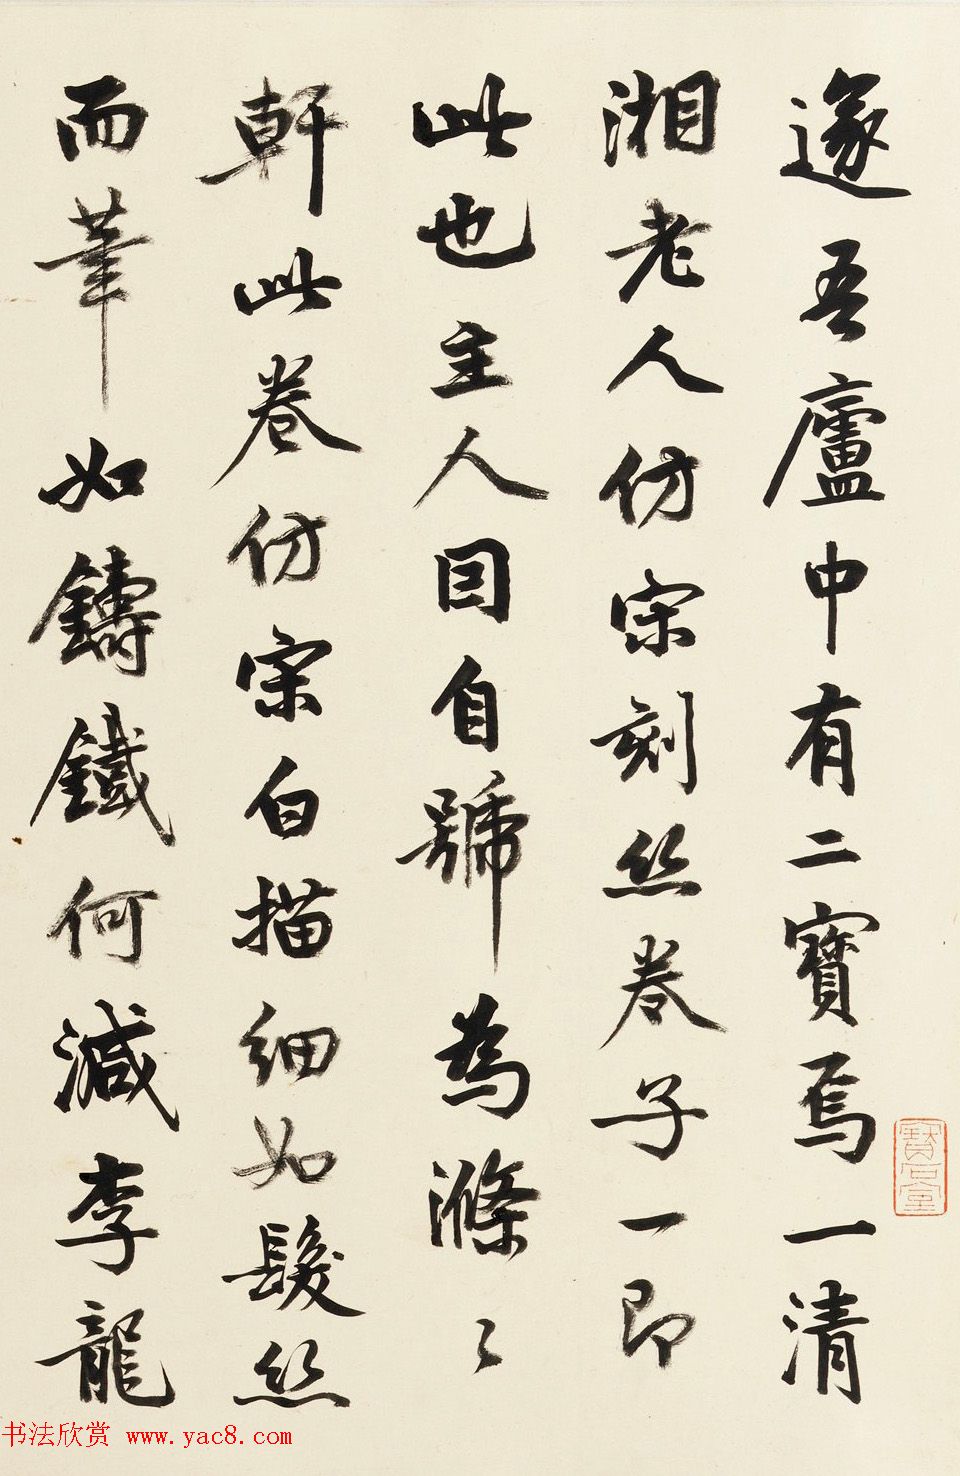 邃吾廬中有二寶焉一清
湘老人仿宋刻丝卷子一即
此也主人因自號為滌〻
軒此卷仿宋白描細如髮丝
而筆如鑄鐵何減李龍
寶石室
书法欣赏 www.yac8.com